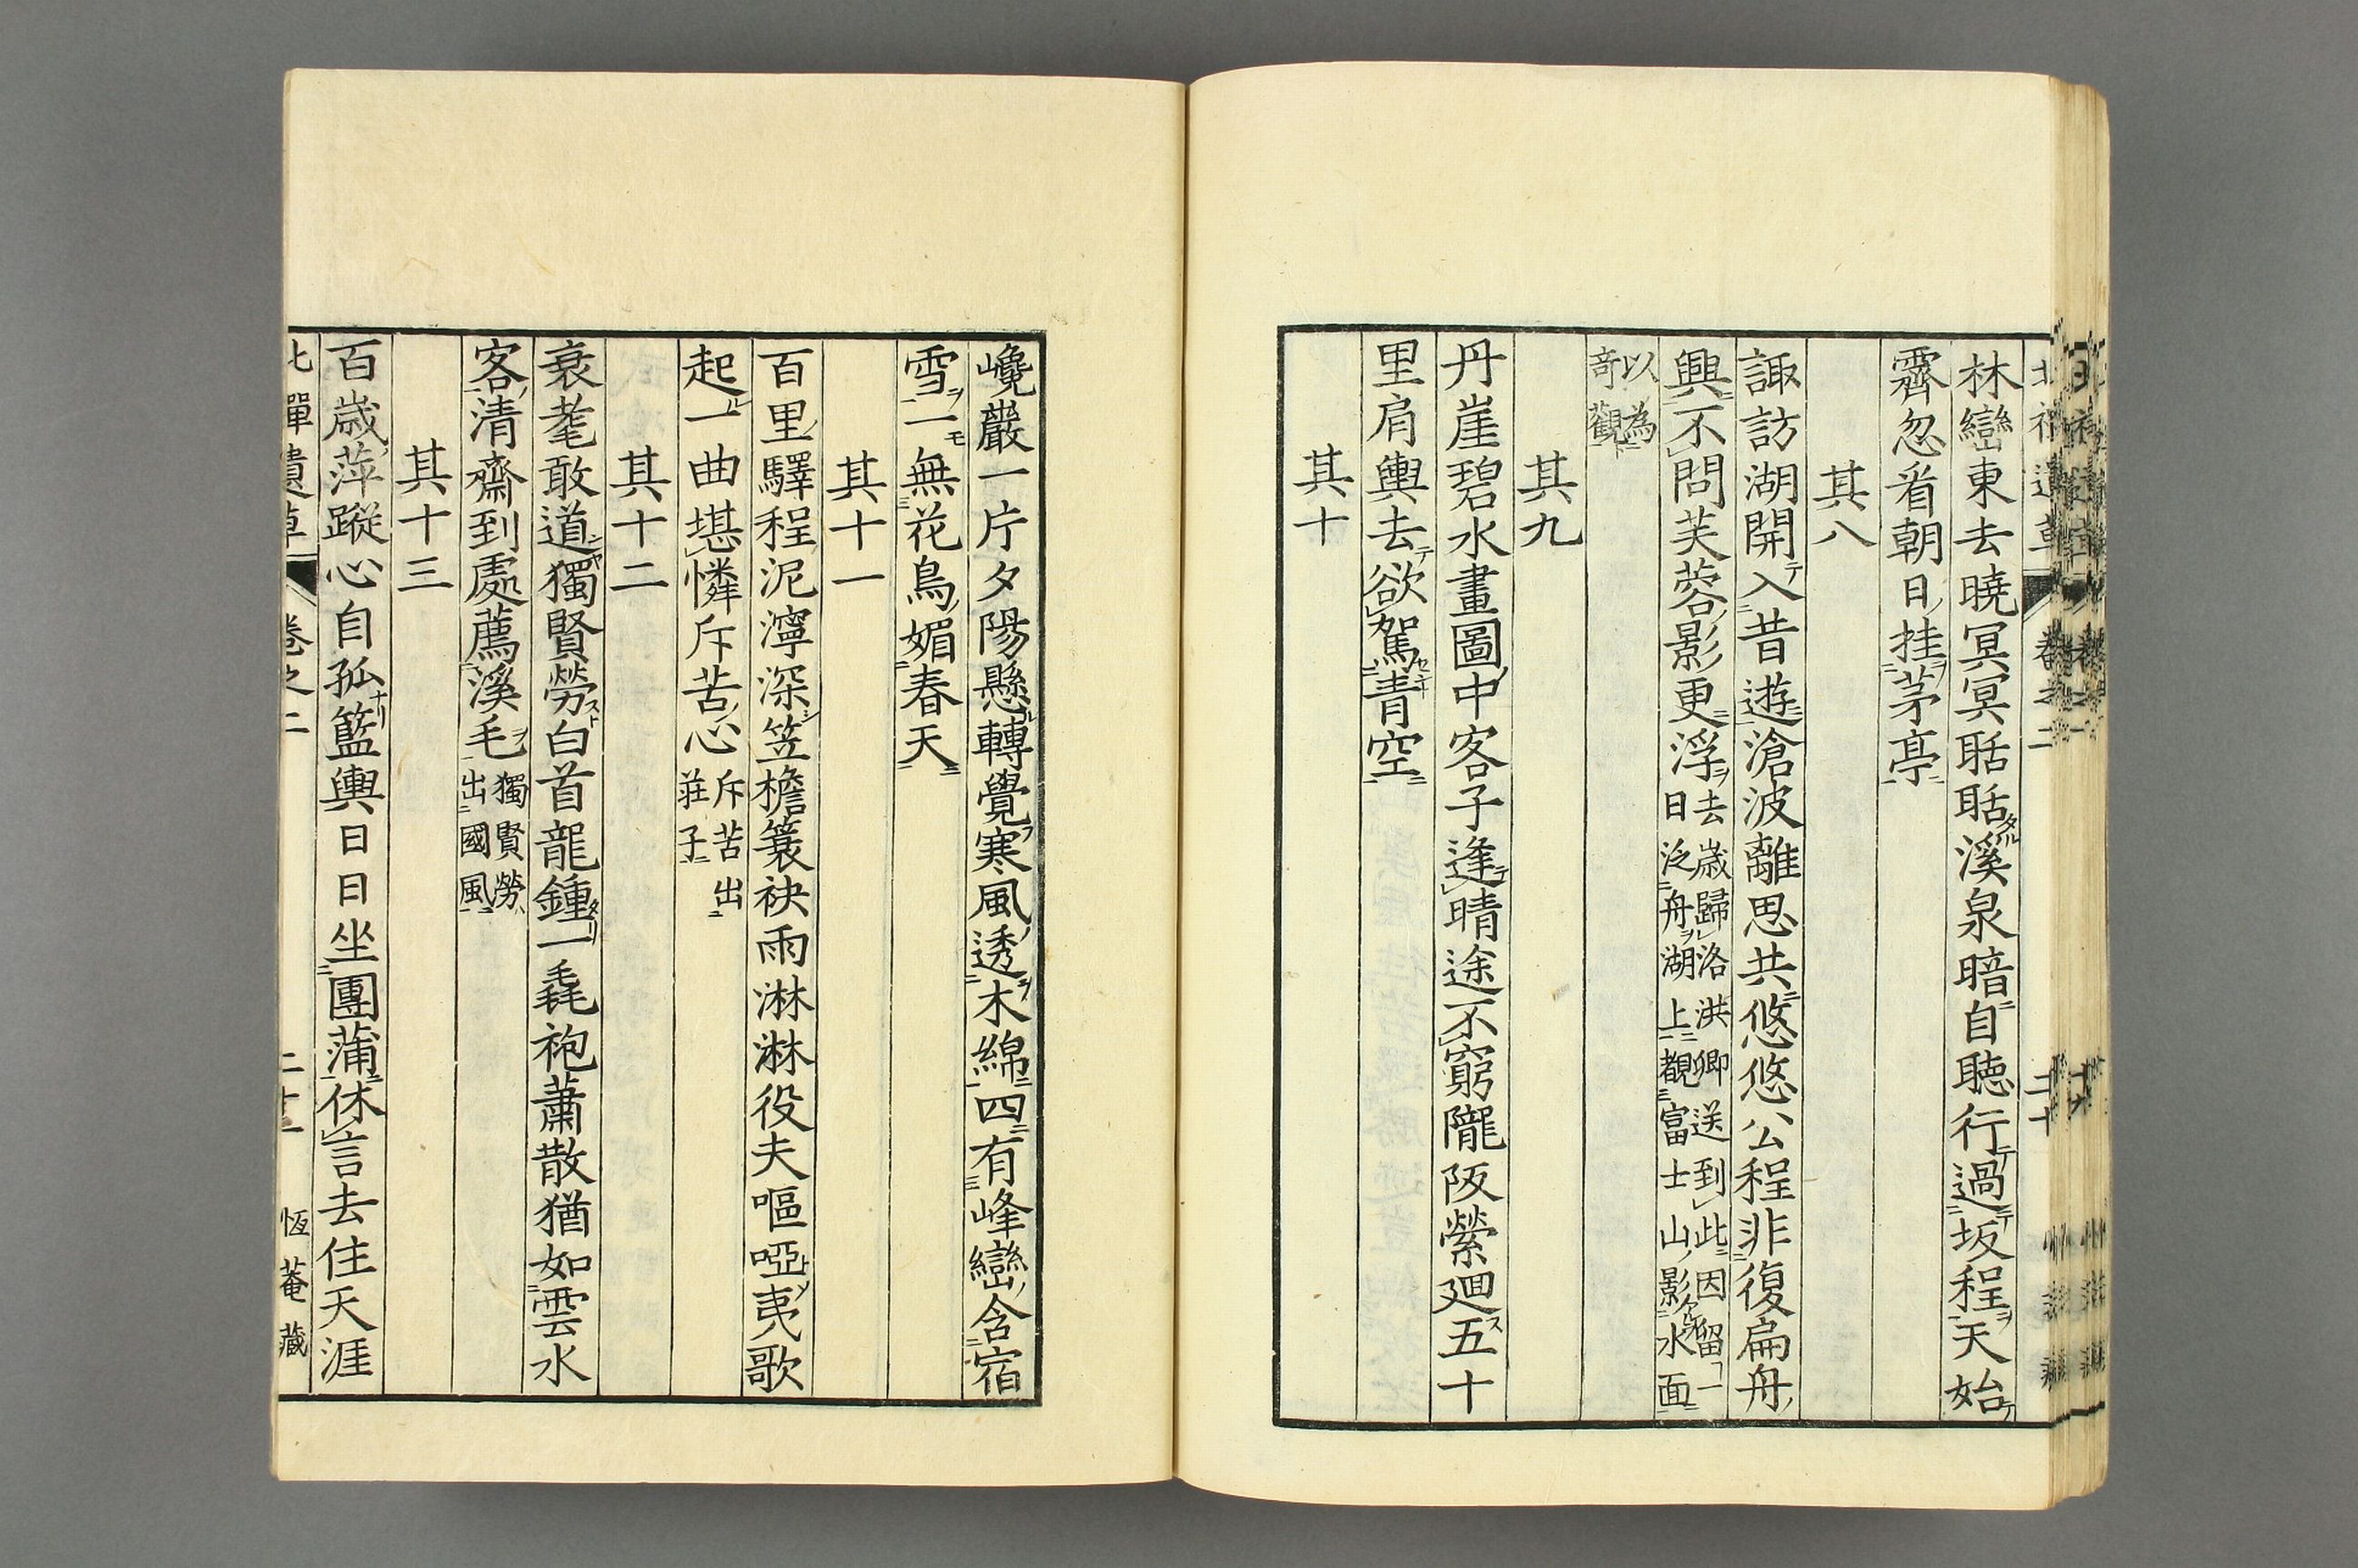 林巒東去曉冥冥聒聒溪泉暗自聽行過坂程天始
霽忽看朝日挂茅亭
其八
諏訪湖開入昔遊滄波離思共悠悠公程非復扁舟
興不問芙蓉影更浮
去歲歸洛洪卿送到此因留一
日泛舟湖上觀富士山影水面
以為
奇觀
其九
丹崖碧水畫圖中客子逢晴途不窮隴阪縈廻五十
里肩輿去欲駕青空
其十
巉巖一片夕陽懸轉覺寒風透木綿四有峰巒含宿
雪一無花鳥媚春天
其十一
百里驛程泥濘深笠檐簑袂雨淋淋役夫嘔啞夷歌
起一曲堪憐斥苦心
斥苦出
莊子
其十二
衰耄敢道獨賢勞白首龍鍾一毳袍蕭散猶如雲水
客清齋到處薦溪毛
獨賢勞
出國風
其十三
百歲萍蹤心自孤籃輿日日坐團蒲休言去住天涯
北禪遺草 卷之二 二十一 恆菴藏